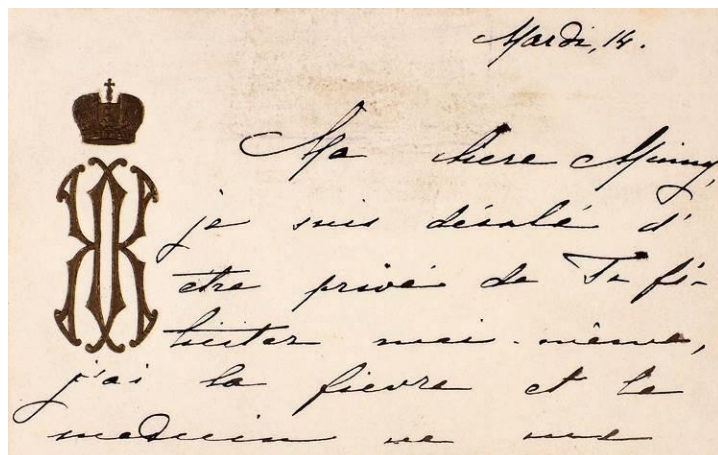 Mardi, 14.
Ma chere Minny,
je suis désolé d'
etre privé de Te fé-
liciter moi-même,
j'ai la fievre et le
medecin ne me